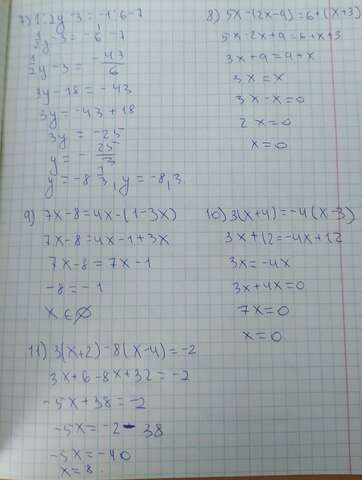 7) 1:2y-3=-1:6-7
1/2y-3=-1/6-7
1/2y-3=-43/6
3y-18=-43
3y=-43+18
3y=-25
y=-25/3
y=-8 1/3, y=-8,3
8) 5x-(2x-9)=6+(x+3)
5x-2x+9=6+x+3
3x+9=9+x
3x=x
3x-x=0
2x=0
x=0
9) 7x-8=4x-(1-3x)
7x-8=4x-1+3x
7x-8=7x-1
-8=-1
x∈∅
10) 3(x+4)=-4(x-3)
3x+12=-4x+12
3x=-4x
3x+4x=0
7x=0
x=0
11) 3(x+2)-8(x-4)=-2
3x+6-8x+32=-2
-5x+38=-2
-5x=-2-38
-5x=-40
x=8